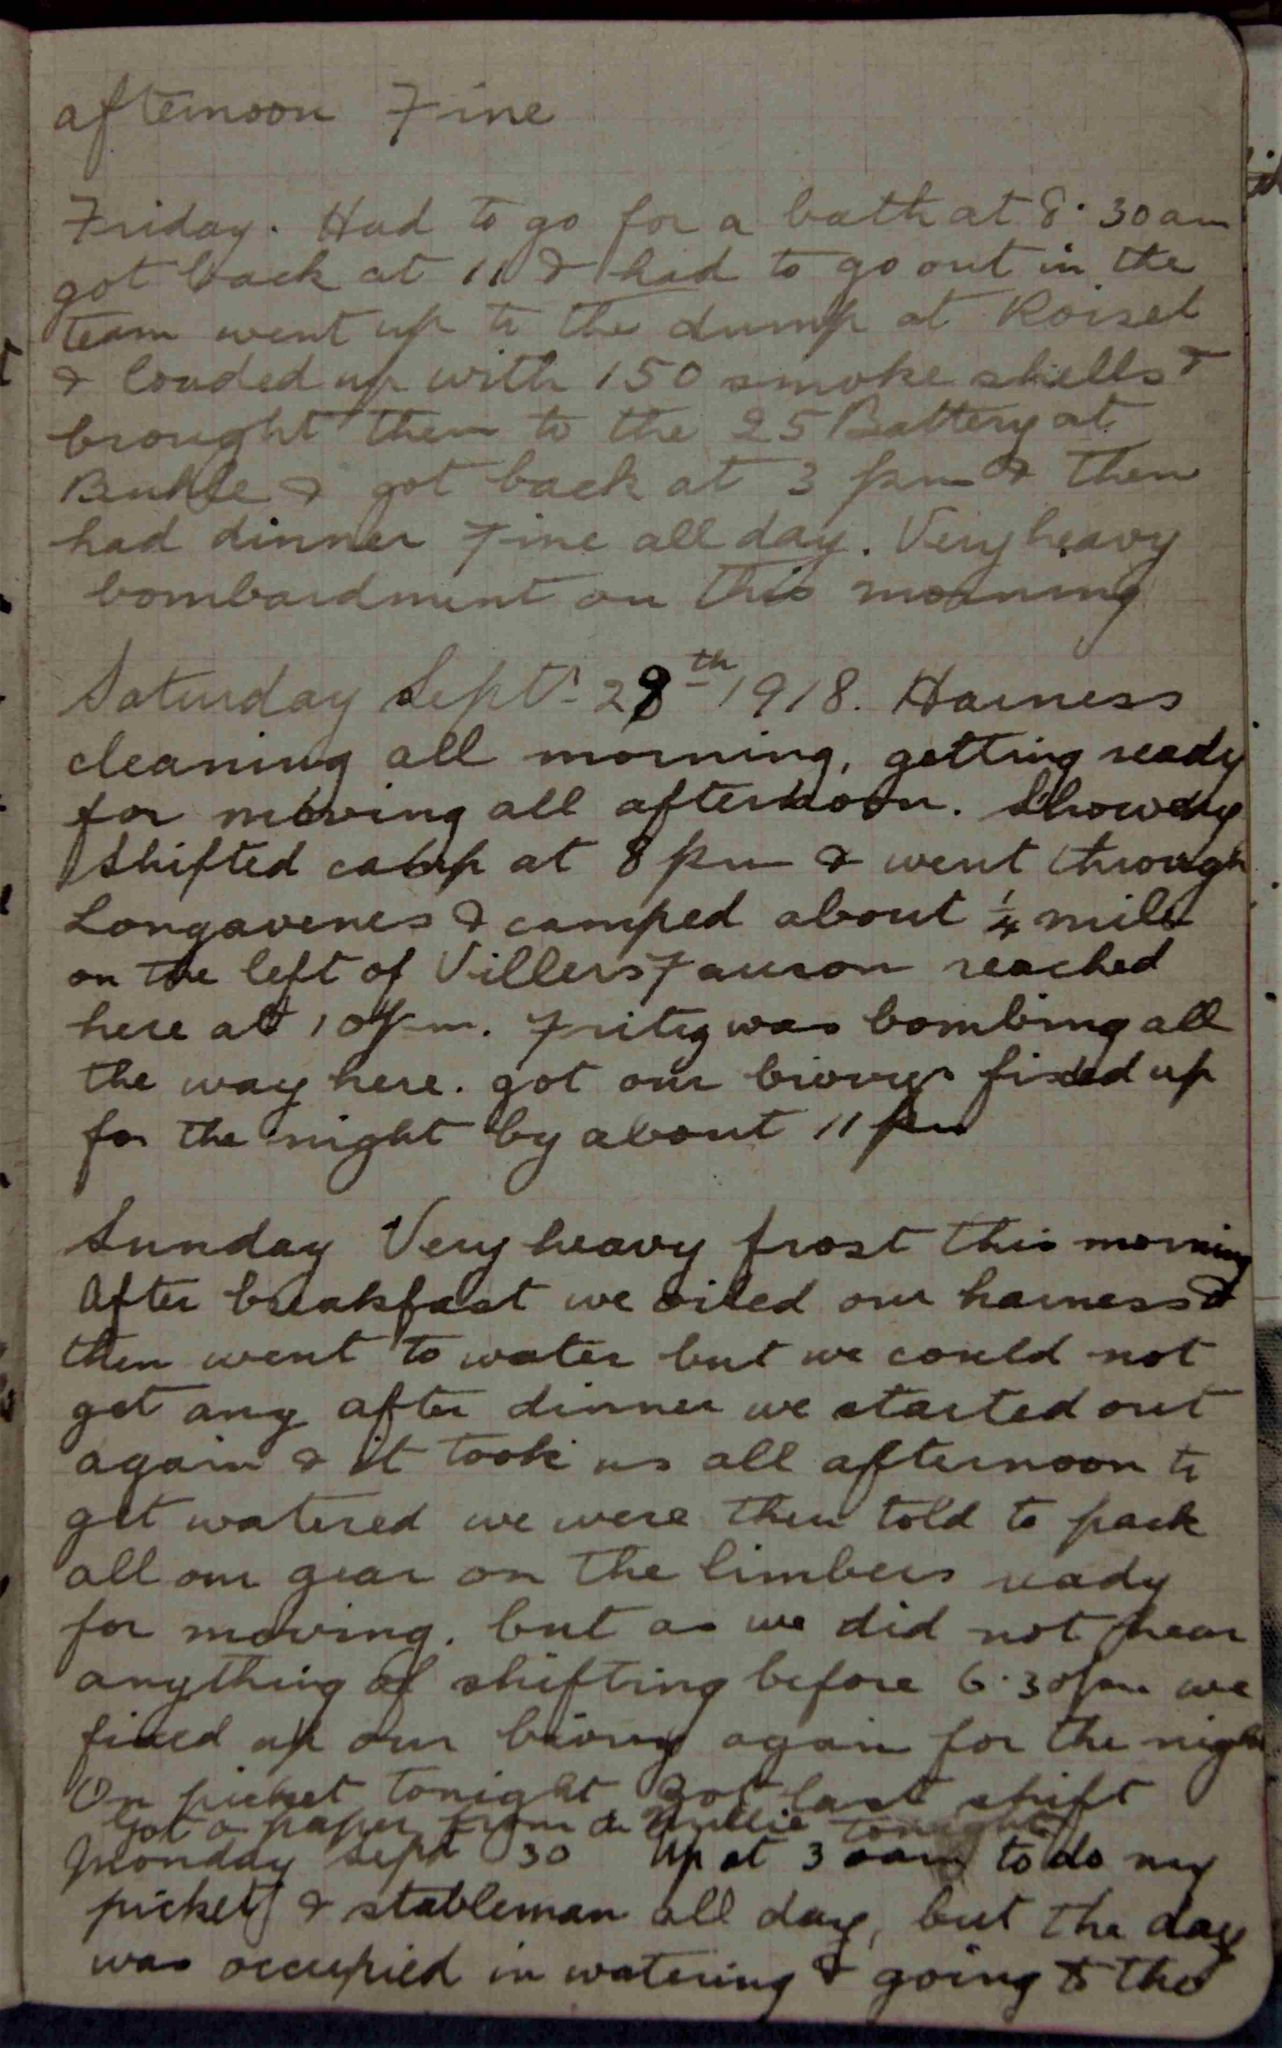 afternoon Fine
Friday. Had to go for a bath at 8.30 am
got back at 11 & had to go out in the
team went up to the dump at Roisel
& loaded up with 150 smoke shells &
brought them to the 25 Battery at
& got back at 3 pm & then
had dinner Fine all day. Very heavy
bombardment on this morning
Saturday Sept. 28th 1918. Harness
cleaning all morning, getting ready
for moving all afternoon. Showery
Shifted camp at 8 pm & went through
Longavenes & camped about 1/4 mile
on the left of Villers Fauson reached
here at 10 pm. Fritz was bombing all
the way here. got our bivvys fixed up
for the night by about 11 pm
Sunday Very heavy frost this morning
After breakfast we oiled our harness &
then went to water but we could not
get any after dinner we started out
again & it took us all afternoon to
get watered we were then told to pack
all our gear on the limbers ready
for moving. but as we did not hear
anything of shifting before 6.30 pm we
fixed up our bivvy again for the night
On picket tonight got last shift
Got a paper from tonight
Monday Sept 30 Up at 3 am to do my
picket & stableman all day, but the day
was occupied in watering & going to the